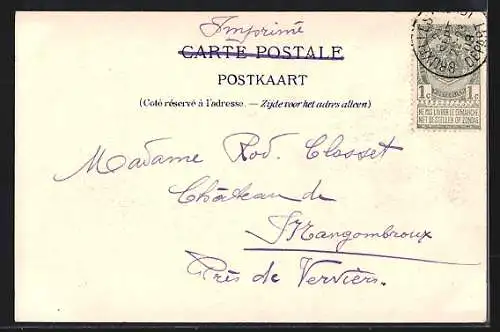 Imprimé
CARTE POSTALE
POSTKAART
(Coté réservé à l'adresse. — Zijde voor het adres alleen)
1c 1c
NE PAS LIVRER LE DIMANCHE
NIET BESTELLEN OP ZONDAG
Madame Rod. Closset
Château de
Mangombroux
Près de Verviers.